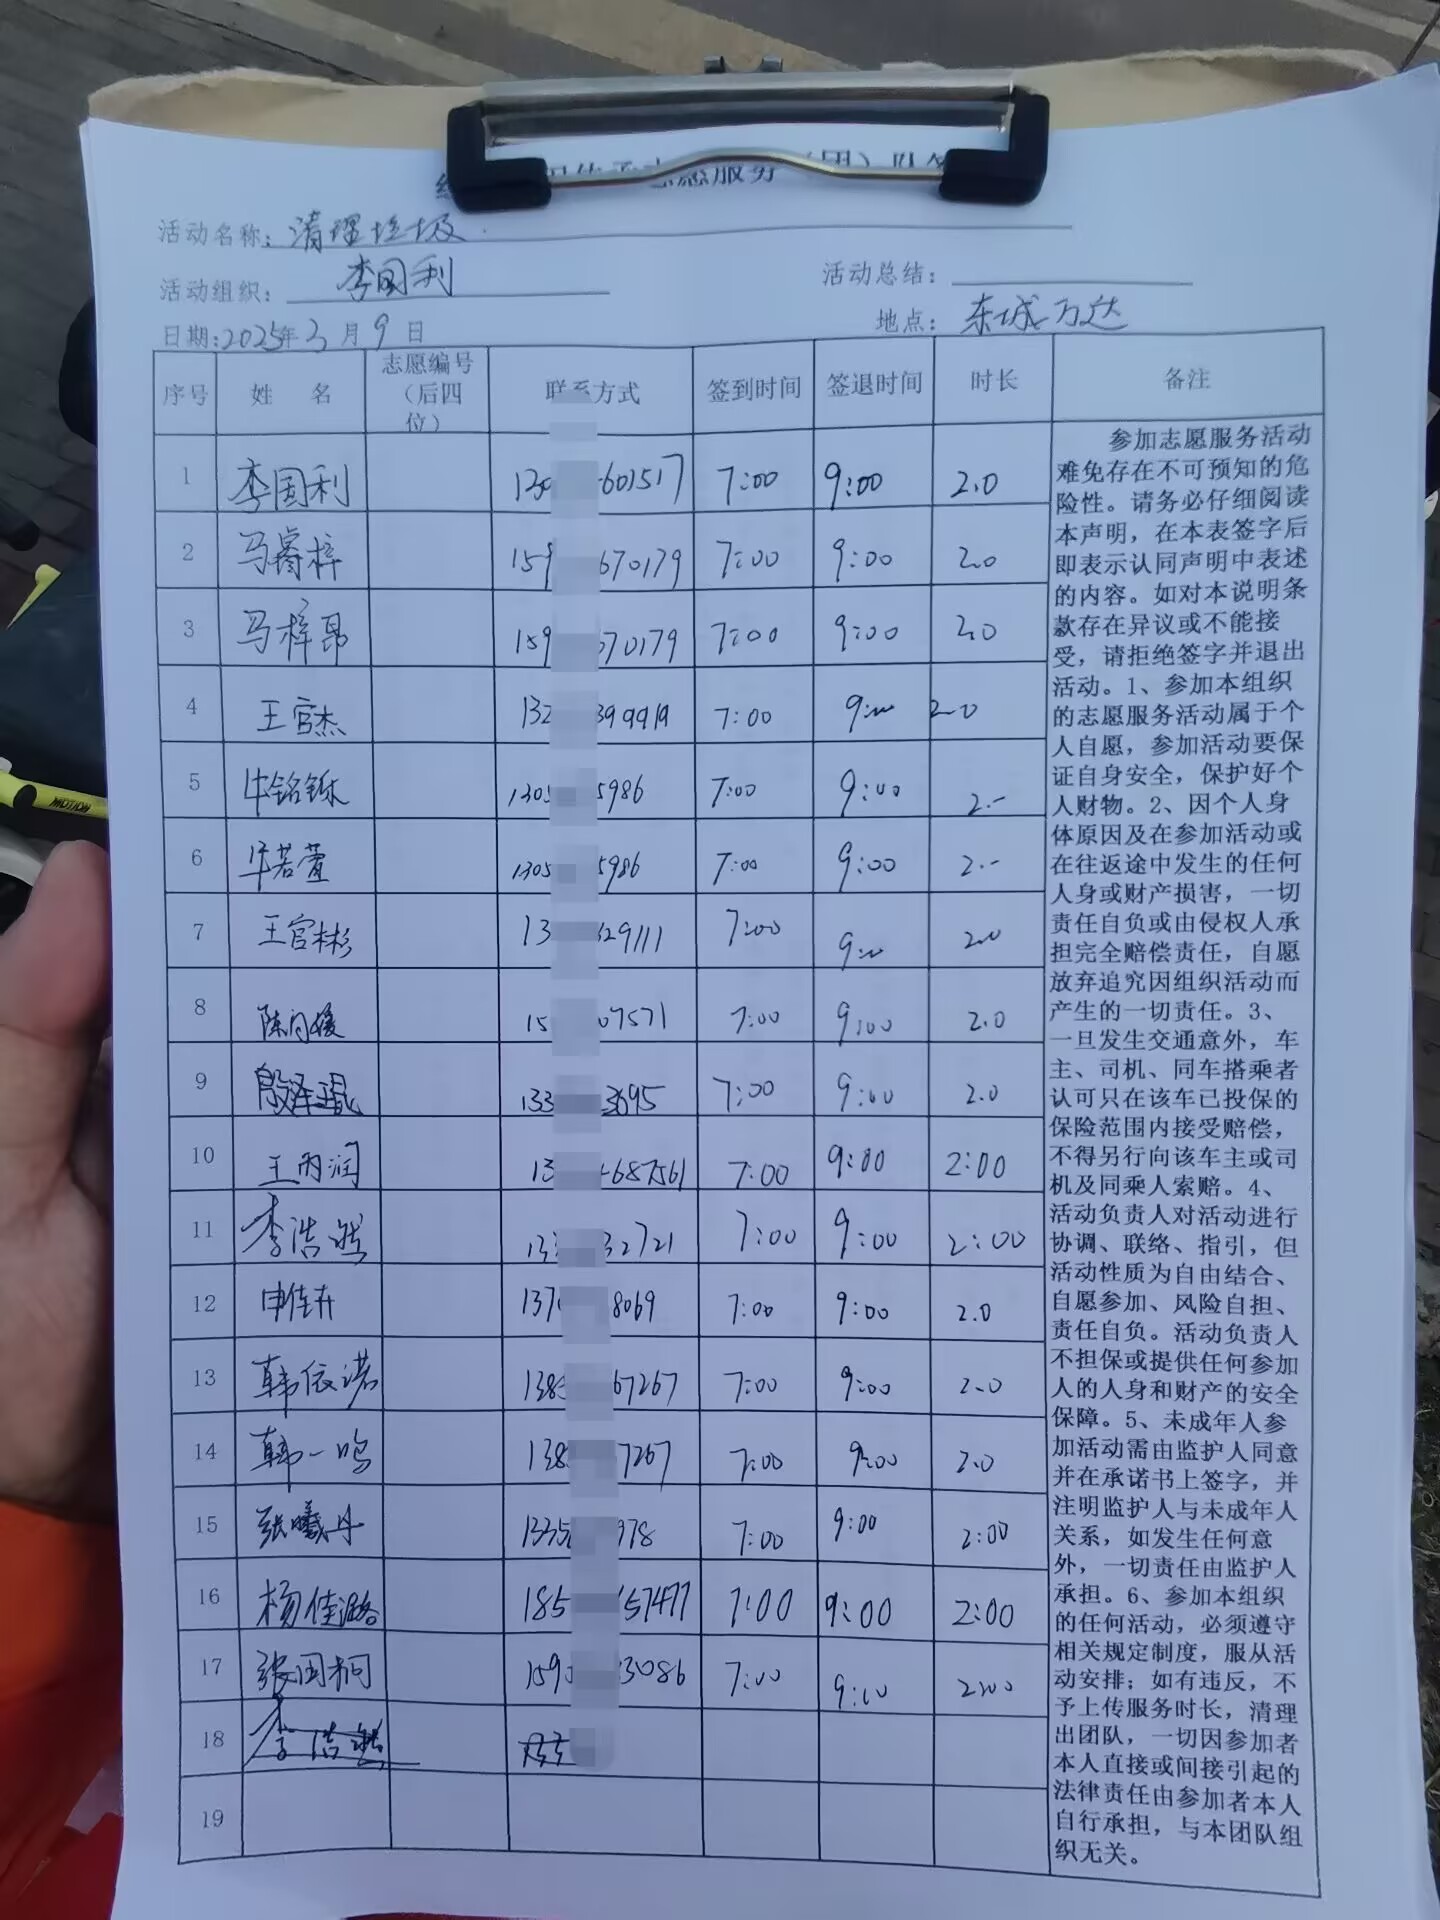 志愿服务（团）队签
活动名称：清理垃圾
活动组织：李国利 活动总结：
日期:2025年3月9日 地点：东城万达
序号 姓 名 志愿编号（后四位） 联系方式 签到时间 签退时间 时长 备注
1 李国利 601517 7:00 9:00 2.0
2 马睿梓 159 670179 7:00 9:00 2.0
3 马梓昂 159 70179 7:00 9:00 2.0
4 王官杰 132 399919 7:00 9:00 2.0
5 牛铭铄 1305 5986 7:00 9:00 2.-
6 牛若萱 1305 5986 7:00 9:00 2.-
7 王官彬 13 29111 7:00 9:00 2.0
8 陈 媛 15 07571 7:00 9:00 2.0
9 殷泽琨 133 3695 7:00 9:00 2.0
10 王丙润 13 687561 7:00 9:00 2:00
11 李浩然 13 32721 7:00 9:00 2:00
12 申佳卉 137 8069 7:00 9:00 2.0
13 韩依诺 138 67267 7:00 9:00 2.0
14 韩一鸣 138 7267 7:00 9:00 2.0
15 张曦丹 1335 978 7:00 9:00 2:00
16 杨佳潞 185 57477 7:00 9:00 2:00
17 张国桐 159 3086 7:00 9:00 2:00
18 李浩然
19
参加志愿服务活动
难免存在不可预知的危
险性。请务必仔细阅读
本声明，在本表签字后
即表示认同声明中表述
的内容。如对本说明条
款存在异议或不能接
受，请拒绝签字并退出
活动。1、参加本组织
的志愿服务活动属于个
人自愿，参加活动要保
证自身安全，保护好个
人财物。2、因个人身
体原因及在参加活动或
在往返途中发生的任何
人身或财产损害，一切
责任自负或由侵权人承
担完全赔偿责任，自愿
放弃追究因组织活动而
产生的一切责任。3、
一旦发生交通意外，车
主、司机、同车搭乘者
认可只在该车已投保的
保险范围内接受赔偿，
不得另行向该车主或司
机及同乘人索赔。4、
活动负责人对活动进行
协调、联络、指引，但
活动性质为自由结合、
自愿参加、风险自担、
责任自负。活动负责人
不担保或提供任何参加
人的人身和财产的安全
保障。5、未成年人参
加活动需由监护人同意
并在承诺书上签字，并
注明监护人与未成年人
关系，如发生任何意
外，一切责任由监护人
承担。6、参加本组织
的任何活动，必须遵守
相关规定制度，服从活
动安排；如有违反，不
予上传服务时长，清理
出团队，一切因参加者
本人直接或间接引起的
法律责任由参加者本人
自行承担，与本团队组
织无关。